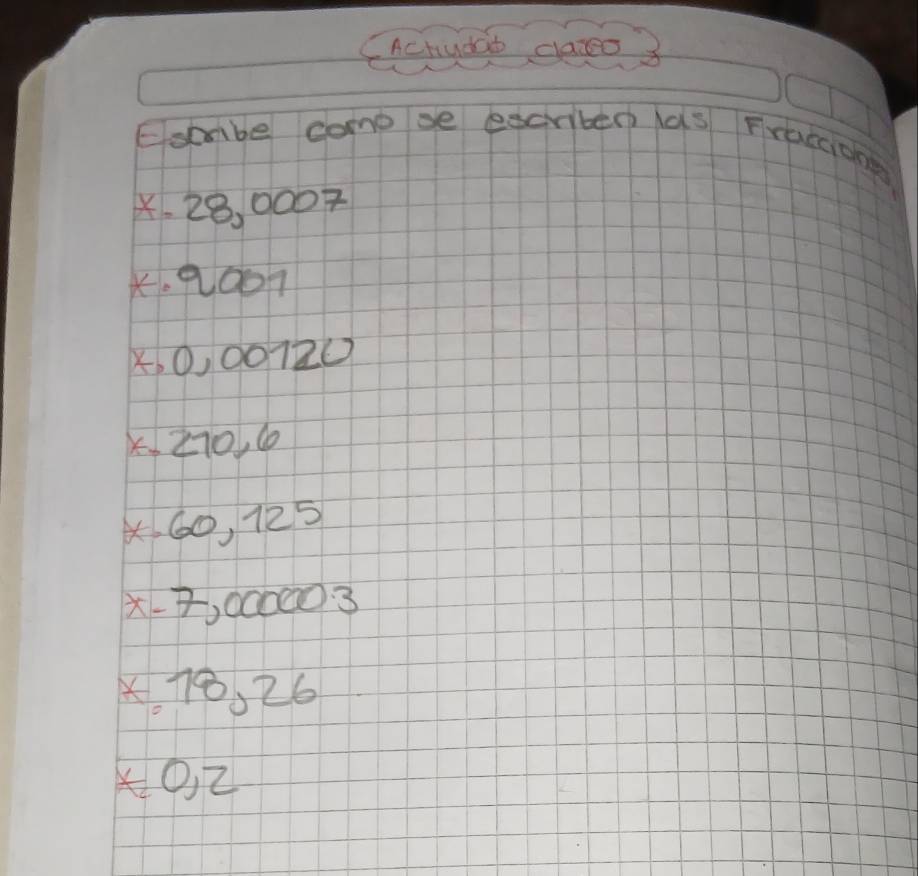 Actiudad clazeo 3
Escribe como se escriben las Fracciones.
x. 28,0007
x. 9001
x. 0,00120
x. 210,6
x. 60,125
x- 7,000003
x. 18,26
x. 0,2